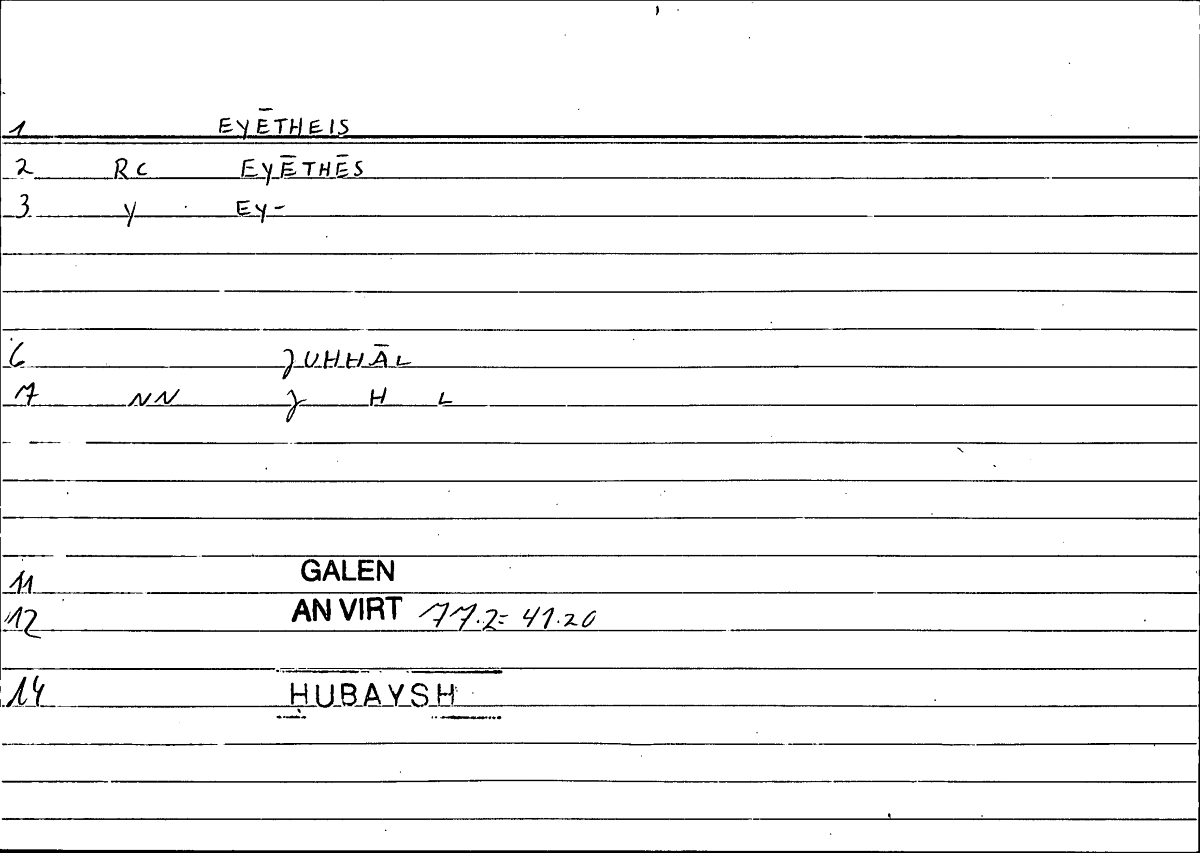 1 EYĒTHEIS
2 RC EYĒTHĒS
3 Y EY-
6 JUHHĀL
7 NN J H L
11 GALEN
12 AN VIRT 77.2= 41.20
14 ḤUBAYSH